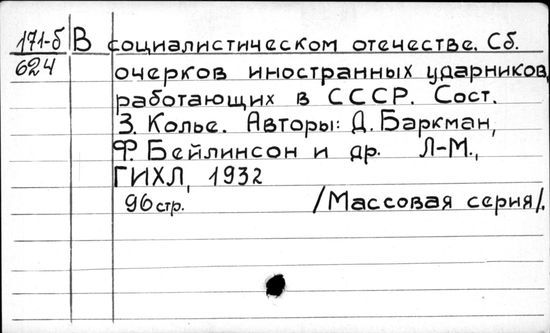 171-б В социалистическом отечестве. Сб.
624 очерков иностранных ударников,
работающих в СССР. Сост.
З. Колье. Авторы: Д. Баркман,
Ф. Бейлинсон и др. Л-М.,
ГИХЛ, 1932
96 стр. /Массовая серия/.